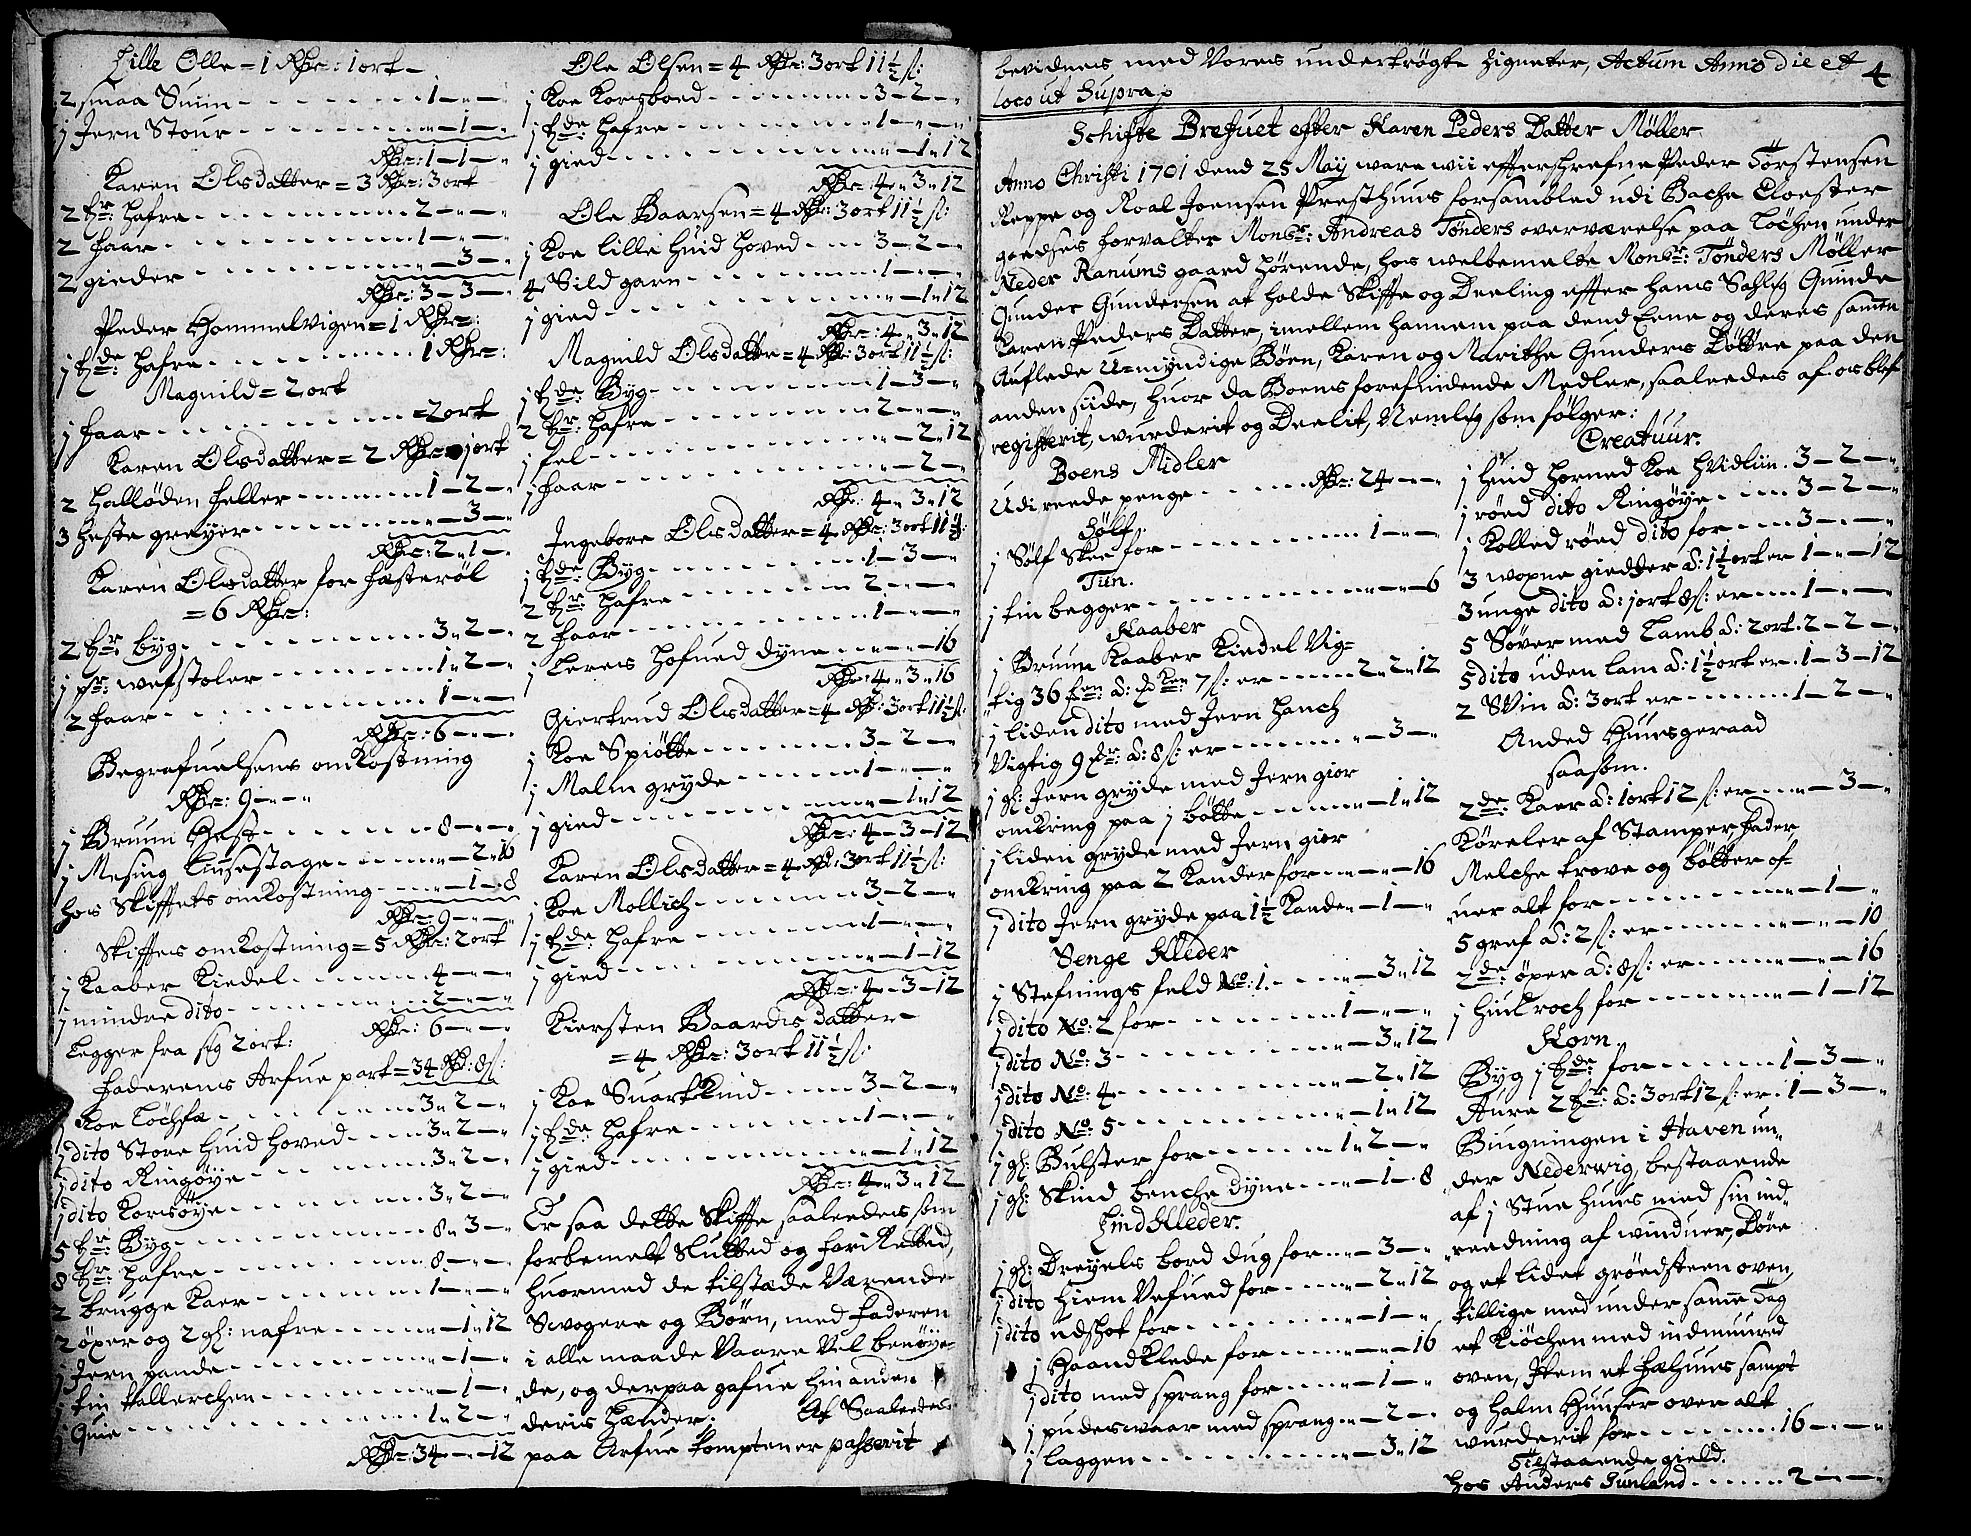 Lille Olle = 1 Rdr: 1 ort -
2 smaa Suin 1 - -
j Jern Stour - 1 -
Rdr: 1 - 1 -
Karen Olsdatter = 3 Rdr: 3 ort
2 tr: hafre 2 - -
2 faar 1 - -
2 gieder - 3 -
Rdr: 3 - 3 -
Peder Hommelvigen = 1 Rdr:
j tde: hafre 1 Rdr:
Magnild = 2 ort
j faar = 2 ort
Karen Olsdatter = 2 Rdr jort
2 Halløden feller 1 - 2 -
3 heste greyer - 3 -
Rdr: 2 " 1 -
Karen Olsdatter for fæsterøl
= 6 Rdr:
2 tr: byg 3 " 2 -
j pr: wefstoler 1 " 2 -
2 faar 1 - -
Rdr: 6 - -
Begrafuelsens omkostning
Rdr: 9 - -
j Bruun Hest 8 - -
j Mesing liusestage - 2 " 16
hos Skifftets omkostning - 1 - 8
Rdr: 9 - -
Skifftes omkostning = 5 Rdr: 2 ort
j Kaaber Kiedel 4 - -
j mindre dito 2 - -
Rdr: 6 - -
Legger fra sig 2 ort:
Faderens Arfue part = 34 Rd: 8 s:
j Koe Løchfæ 3 " 2 -
j dito Store Huid hoved 3 " 2 -
j dito Ringøye 3 " 2 -
j dito Korsøye 3 " 2 -
5 tr: Byg 8 " 3 -
8 tr: hafre 8 - -
2 brugge Kaer 1 - -
2 øxer og 2 gl: nafre - 1 " 12
j Jern pande - 1 -
j tin tallerchen - 1 -
j Quie 1 " 2 -
Rdr: 34 - - 12
Ole Olsen = 4 Rdr: 3 ort 11 1/2 s:
j Koe Korsboed 3 - 2 -
j tde: hafre 1 - -
j gied - 1 " 12
Rdr: 4 " 3 " 12
Ole Baarsen = 4 Rdr: 3 ort 11 1/2 s:
j Koe lille huid hoved 3 - 2 -
4 Sild garn 1 - -
j gied - 1 " 12
Rdr: 4 " 3 " 12
Magnild Olsdatter = 4 Rdr: 3 ort 11 1/2 s:
j tde: Byg 1 - 3 -
2 tr: hafre 2 - -
j fel - 2 " 12
j faar - 2 -
Rdr: 4 " 3 " 12
Ingebore Olsdatter = 4 Rdr: 3 ort 11 1/2:
j tde: Byg 1 - 3 -
2 tr: hafre 2 - -
2 faar 1 - -
j Lerets hofued dyne - - 16
Rdr: 4 - 3 " 16
Giertrud Olsdatter = 4 Rdr: 3 ort 11 1/2 s:
j Koe Spiøtte 3 - 2 -
j Malm gryde 1 - -
j gied - 1 " 12
Rdr: 4 - 3 - 12
Karen Olsdatter = 4 Rd: 3 ort 11 1/2 s:
j Koe Mollich 3 - 2 -
j tde: hafre 1 - -
j gied - 1 - 12
Rdr: 4 - 3 - 12
Kiersten Baardsdatter
= 4 Rdr: 3 ort 11 1/2 s:
j Koe Suartkind 3 - 2 -
j tde: hafre 1 - -
j gied - 1 " 12
Rdr: 4 " 3 " 12
Er saa dette Skiffte saaledes som
forbemelt Slutted og foreRetted,
huormed de tilstæde Værende
Svogere og Børn, med Faderen
i alle maade Vaare Vel benøye-
de, og derpaa gafue hinanden
deris hænder. At Saaledes
paa Arfue tompten er passerit
bevidnes med Vores undertrøgte Zigneter, Actum Anno die et 4
loco ut Supra
Schifte Brefuet efter Karen Peders Datter Møller
Anno Christi 1701 dend 25 Maÿ ware wii effterschrefne Peder Törstensen
Reppe og Roal Joensen Presthuus forsambled udi Bache Cloester
geodses forvalter Monsr: Andreas Tönders overværelse paa Löchen under
Neder Ranums gaard hörende, hos welbemelte Monsr: Tönders Möller
Gunder Gundersen at holde Skiffte og Deeling effter hans Sahlig Quinde
Karen Peders Datter, imellem hannem paa dend Eene og deres samen
Auflede U-myndige Børn, Karen og Marithe Gunders Døttre paa den
anden siide, huor da Boens forefindende Medler, saaledes af os blef
registerit, wurderit og Deelit, Nemlig som følger:
Boens Midler
Udi reede penge Rdr: 24 - -
Sölf.
j Sölf Skee for 1 - -
Tin.
j tin begger - - 6
Kaaber
j Bruun Kaaber Kiedel Vig-
tig 36 ... 7 s: er 2 - 2 " 12
j liden dito med Jern hanch
Vigtig 9 ... à: 8 s: er - 3 -
j gl: Jern gryde med Jern gior
omkring paa j bötte - 1 " 12
j liden gryde med Jern gior
omkring paa 2 Kander for - - 16
j dito Jern gryde paa 1 1/2 Kande - 1 -
Senge Kleder
j Stefnings feld No: 1. - 3 " 12
j dito No: 2 for 1 - -
j dito No: 3 - 3 " 12
j dito No: 4 - 2 " 12
j dito No: 5 - 1 " 12
j gl: Bulster for 1 " 2 -
j gl: Skind benche dyne - 1 - 8
Lind Kleder.
j gl: Dreyels bord dug for - 3 -
j dito hiem Vefued for - 2 " 12
j dito udshot for - 1 -
j Haandklede for - - 16
j dito med sprang for - 1 -
j pudeswaar med sprang - 2 -
j laggen - 3 " 12
Creatuur.
j huid horned Koe Hvidliin. 3 - 2 -
j röed dito Ringøye 3 - 2 -
j Kolled röed dito for 3 - -
3 woxne giedder à: 1 1/2 ort er 1 - - 12
3 unge dito à: j ort 8 s: er 1 - -
5 Søver med Lamb à: 2 ort. 2 - 2 -
5 dito uden lam à: 1 1/2 ort er. 1 - 3 - 12
2 Swin à: 3 ort er 1 - 2 -
Anded Huusgeraad
saasom.
2de: Kaer à: 1 ort 12 s: er - 3 -
Köreler af Stamper, fader
Melche trove og bötter of-
uer alt for - 1 -
5 gref à: 2 s: er - - 10
2de: øxer à: 8 s: er - - 16
j huilroch for - 1 - 12
Korn.
Byg j tde: for 1 - 3 -
Aure 2 tr: à: 3 ort 12 s: er. 1 - 3 -
Biugningen i Haven un-
der Nederwig, bestaaende
af j Stue huus med sin ind-
reedning af winduer, Døre
og et lidet grödsteen oven,
tillige med under same Tag
et Kiöchen med indmuured
oven, Item et fæhuus sampt
og halm Huuser over alt
wurderit for 16 - -
Tilstaaende gield.
Hos Anders Sunland 2 - -